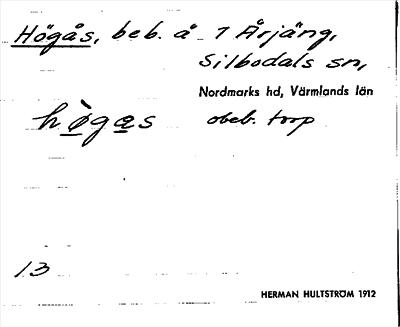 Högås, beb. å 1 Årjäng,
Silbodals sn,
Nordmarks hd, Värmlands län
hø̀gas obeb. torp
13
HERMAN HULTSTRÖM 1912